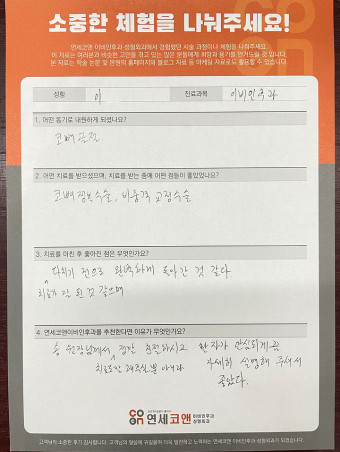 소중한 체험을 나눠주세요!
연세코앤 이비인후과·성형외과에서 경험했던 시술 과정이나 체험을 나눠주세요.
이 치료는 여러분과 비슷한 고민을 겪고 있는 많은 분들에게 희망과 용기를 안겨드릴 것 입니다.
본 자료는 학술 논문 및 본원의 홈페이지와 블로그 자료 등 마케팅 자료로도 활용할 수 있습니다.
성함 이 진료과목 이비인후과
1. 어떤 동기로 내원하게 되셨나요?
코뼈 골절
2. 어떤 치료를 받으셨으며, 치료를 받는 중에 어떤 점들이 좋았었나요?
코뼈 정복수술, 비중격 교정수술
3. 치료를 마친 후 좋아진 점은 무엇인가요?
다치기 전으로 완벽하게 돌아간 것 같다
치료가 잘 된 것 같으며
4. 연세코앤이비인후과를 추천한다면 이유가 무엇인가요?
송 원장님께서 정말 친절하시고 환자가 안심되게끔
치료도 잘 해주실 뿐 아니라 자세히 설명해 주셔서
좋았다.
CO
연세코앤 이비인후과 성형외과
고객님의 소중한 후기 감사합니다. 고객님의 말씀에 귀길울여 더욱 발전하고 노력하는 연세코앤 이비인후과 성형외과가 되겠습니다.